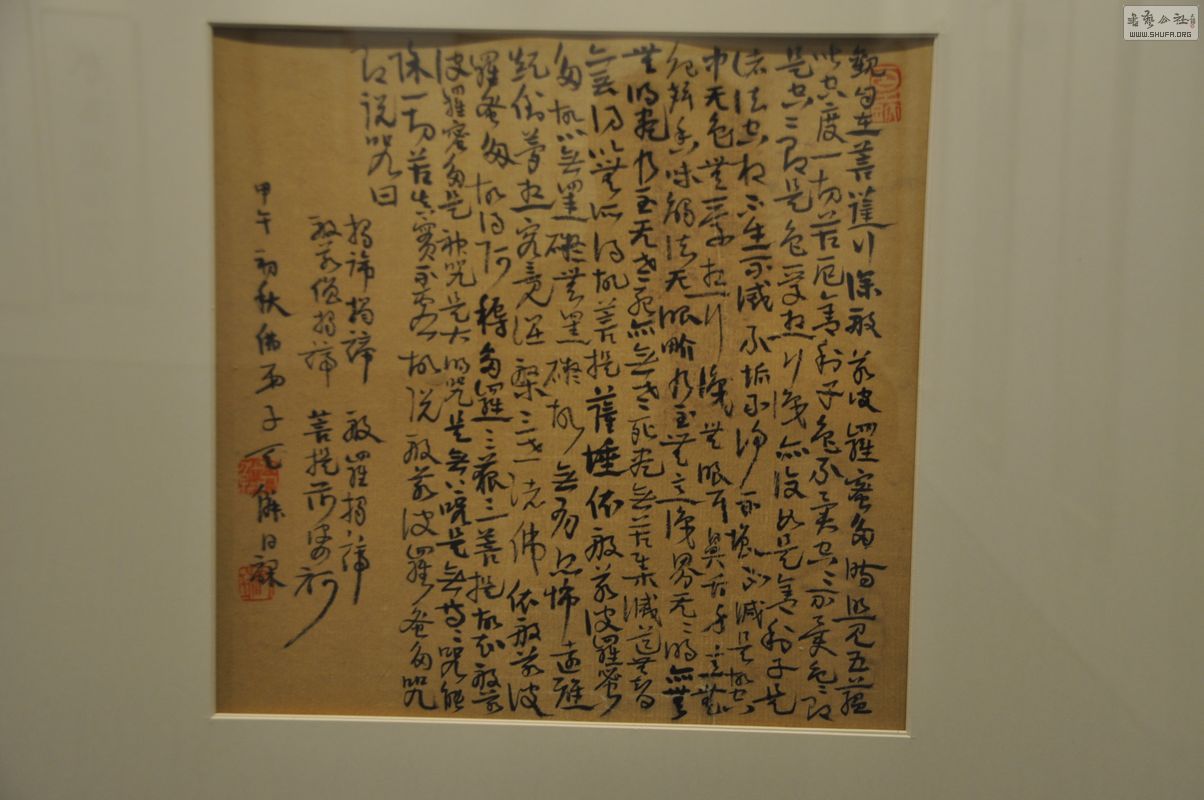 觀自在菩薩行深般若波羅蜜多時照見五蘊
皆空度一切苦厄舍利子色不異空空不異色色即
是空空即是色受想行識亦復如是舍利子是
諸法空相不生不滅不垢不淨不增不減是故空
中无色無受想行識無眼耳鼻舌身意無
色聲香味觸法无眼界乃至無意識界无无明亦無
無明盡乃至无老死亦無老死盡無苦集滅道無智
亦無得以無所得故菩提薩埵依般若波羅蜜
多故心無罣礙無罣礙故無有恐怖遠離
顛倒夢想究竟涅槃三世諸佛依般若波
羅蜜多故得阿耨多羅三藐三菩提故知般若
波羅蜜多是神咒是大明咒是無上咒是無等等咒能
除一切苦真實不虛故說般若波羅蜜多咒
即說咒曰
揭諦揭諦 般羅揭諦
般若僧揭諦 菩提薩婆訶
甲午初秋佛弟子
書藝公社
WWW.SHUFA.ORG